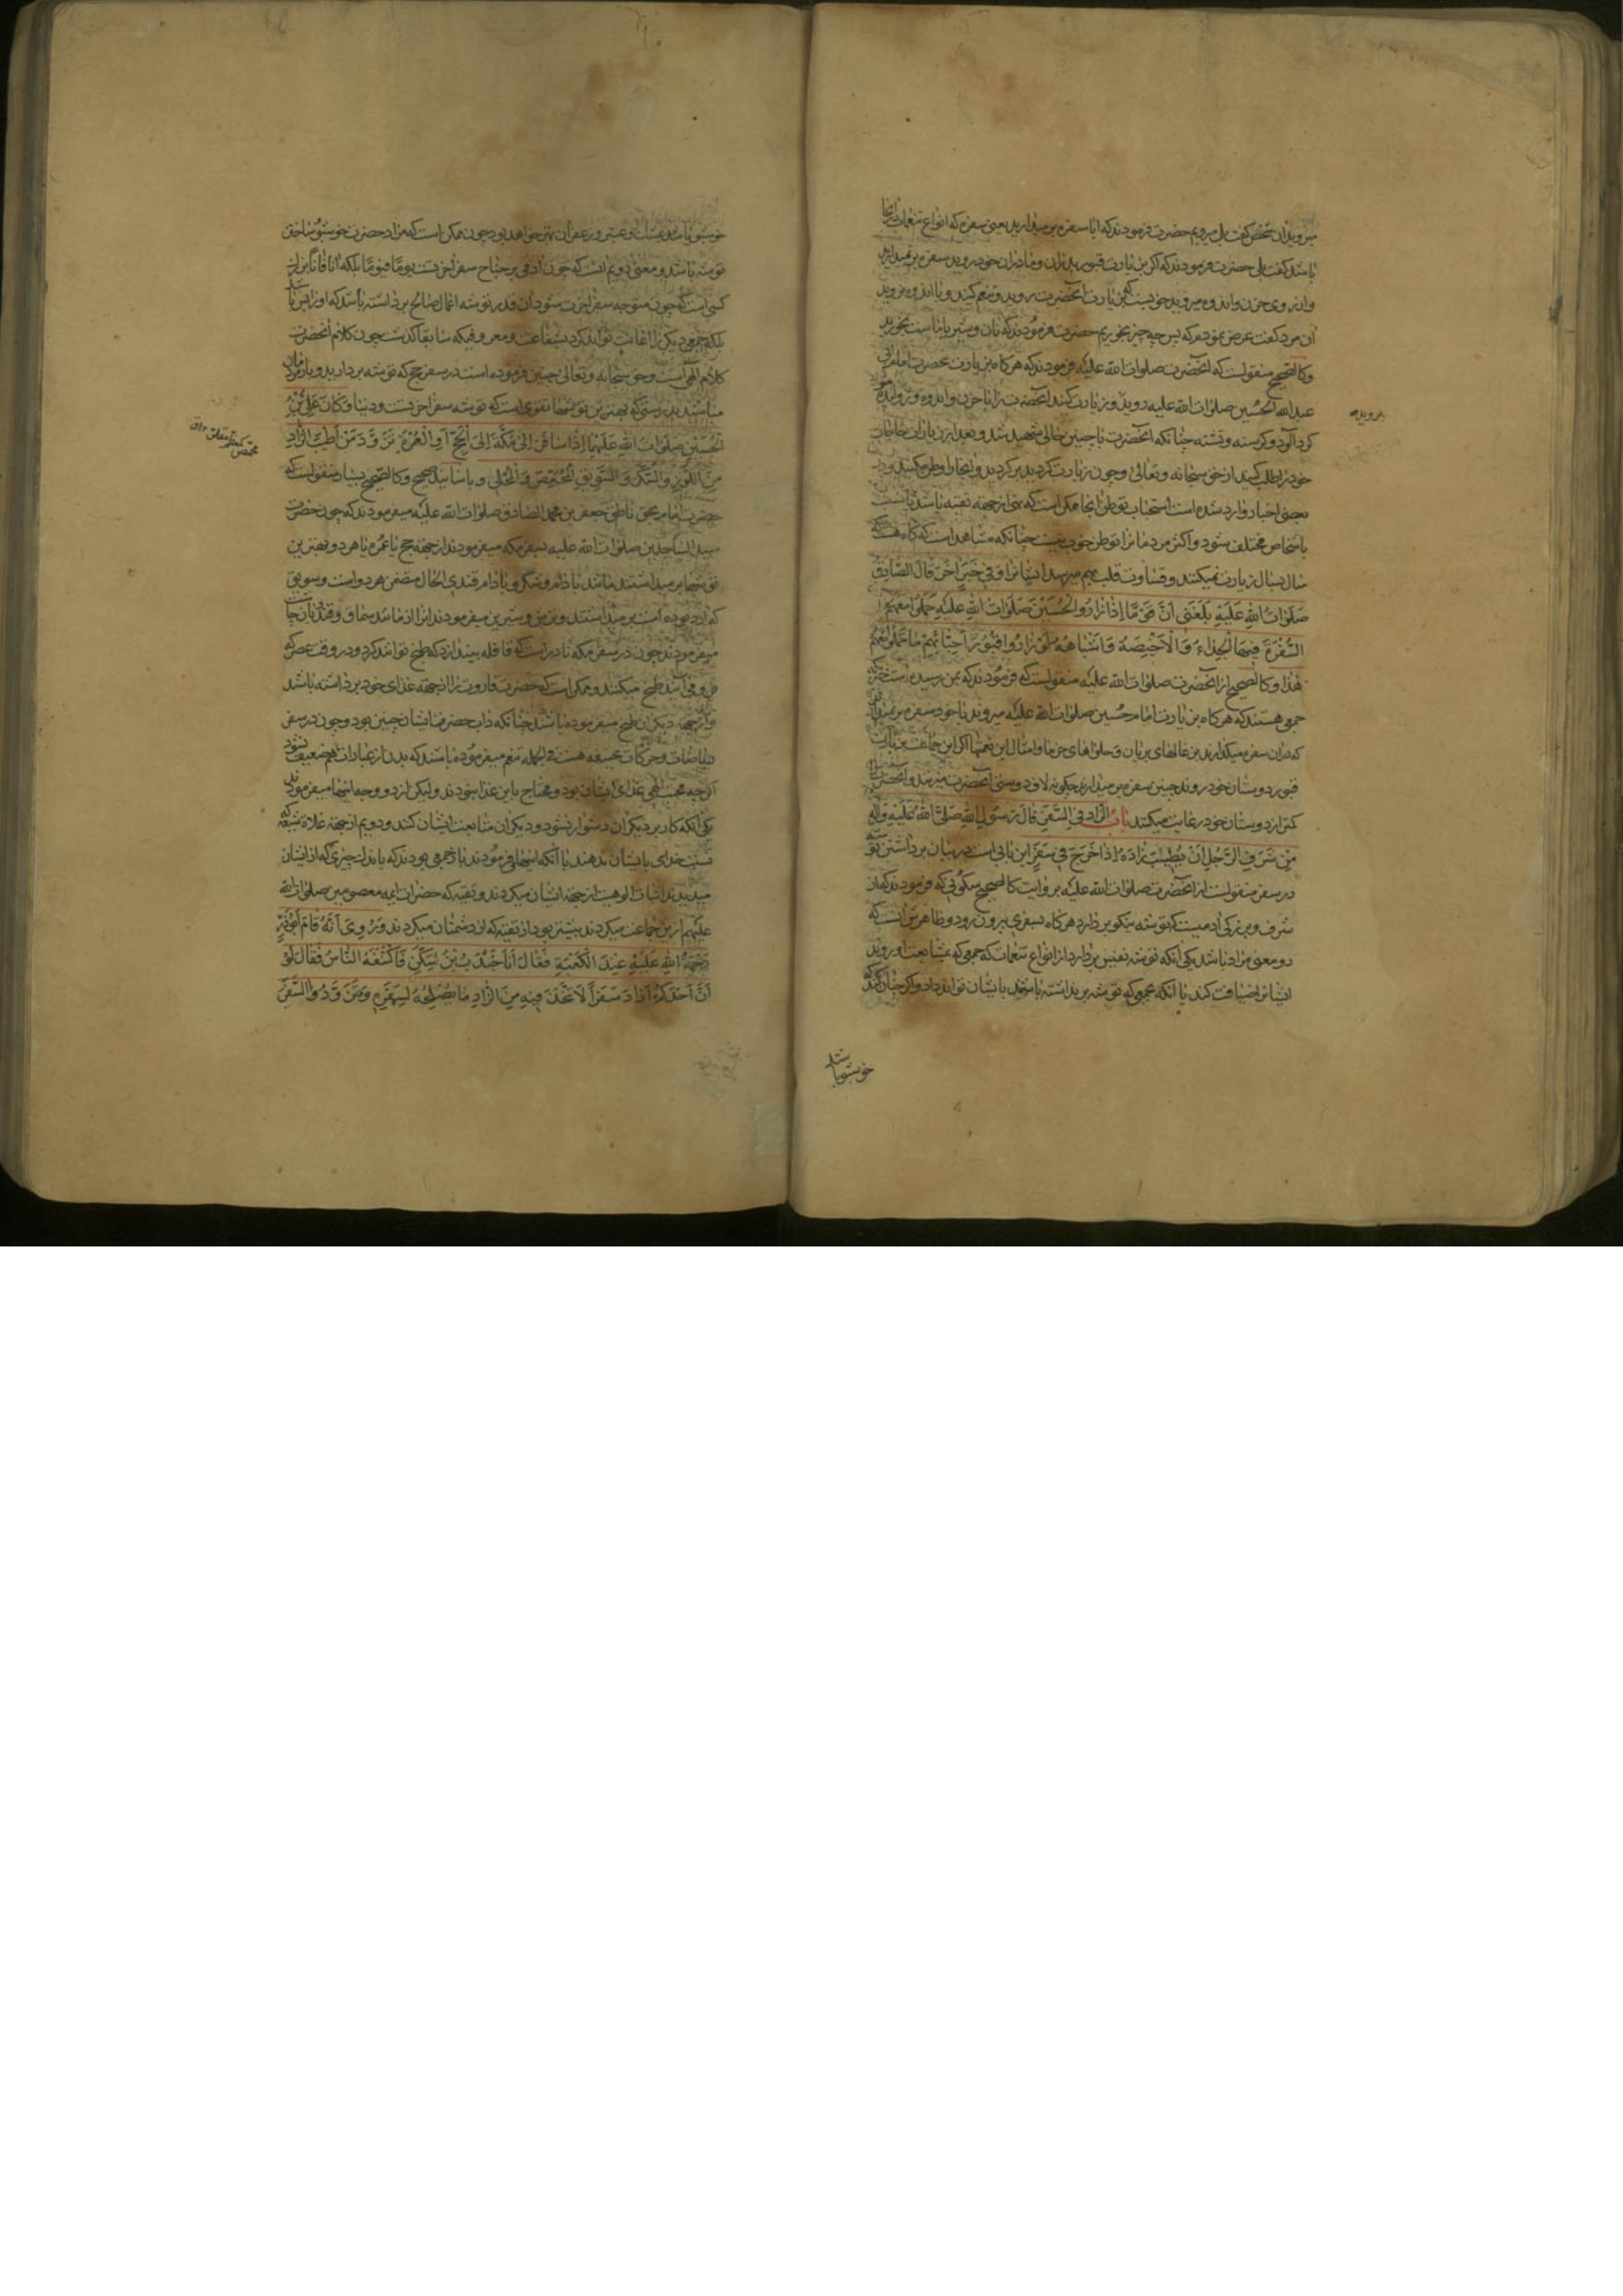 میروید آن شخص گفت بلی میرویم حضرت فرمودند که آیا سفره برمیدارید یعنی سفره که انواع تنعمات در آنجا
باشد گفت بلی حضرت فرمودند که اگر بزیارت قبور پدران و مادران خود روید سفره برنمیدارید
آن مرد گفت عرض نمودم که پس چه چیز بخوریم حضرت فرمودند که نان و شیر یا ماست بخورید
وکالصحیح منقولست که آنحضرت صلوات الله علیه فرمودند که هرگاه بزیارت حضرت امام
عبدالله الحسین صلوات الله علیه روید و زیارت کنید آنحضرت را با حزن و اندوه و ژولیده مو
گرد آلود و گرسنه و تشنه چنانکه آنحضرت با چنین حالی شهید شد و بعد از زیارت حاجات
خود را طلب کنید از حق سبحانه و تعالی و چون زیارت کردید برگردید و آنجا را وطن مکنید و در
بعضی اخبار وارد شده است استحباب توطن آنجا ممکن است که نهی از جهة تقیه باشد یا نسبت
باشخاص مختلف شود و اکثر مردمانرا توطن خوب نیست چنانکه مشاهد است که گاه هست که
سال بسال زیارت نمیکنند و قساوت قلب بهم میرسد ایشانرا وفی خبر اخر قال الصادق
صلوات الله علیه بلغنی ان قوما اذا زاروا الحسین صلوات الله علیه حملوا معهم
السفرة فیها الجداء و الاخبصة و اشباهه لو زاروا قبور احبائهم ما حملوا معهم
هذا وکالصحیح از آنحضرت صلوات الله علیه منقولست که فرمودند که بمن رسیده است خبر که
جمعی هستند که هرگاه بزیارت امام حسین صلوات الله علیه میروند با خود سفره برمیدارند
که در آن سفره میگذارند بزغالهای بریان و حلواهای خرما و امثال این نعمتها اگر این جماعت بزیارت
قبور دوستان خود روند چنین سفره برمیدارند چگونه لاف دوستی آنحضرت میزنند و آنحضرت را
کمتر از دوستان خود رعایت میکنند باب الزاد فی السفر قال رسول الله صلی الله علیه واله
من شرف الرجل ان یطیب زاده اذا خرج فی سفر این بابی است در بیان برداشتن توشه
در سفر منقولست از آنحضرت صلوات الله علیه بروایت کالصحیح سکونی که فرمودند که از
شرف و بزرگی آدمیست که توشه نیکو بردارد هرگاه بسفری بیرون رود و ظاهرش آنست که
دو معنی مراد باشد یکی آنکه توشه نفیس بردارد از انواع تنعمات که جمعی که بمشایعت او روند
ایشانرا ضیافت کند یا آنکه جمعی که توشه برنداشته باشند بایشان تواند داد و اگر چنان کند که
خوشبو باشد
بروید
خوشبو باشد بمشک و عنبر و زعفران بهتر خواهد بود چون ممکن است که مراد حضرت خوشبو ساختن
توشه باشد و معنی دویم آنست که چون آدمی بر جناح سفر آخرتست یوما فیوما بلکه آنا فآنا بزرگ
کسی است که چون متوجه سفر آخرت شود آن قدر توشه اعمال صالح برداشته باشد که
بلکه جمعی دیگر را اعانت تواند کرد بشفاعت و معروفی که سابقا گذشت چون کلام آنحضرت
کلام الهی است و حق سبحانه و تعالی چنین فرموده است در سفر حج که توشه بردارید و بار مردمان
مباشید بدرستی که بهترین توشها تقوی است که توشه سفر آخرتست و دنیا وکان علی بن
الحسین صلوات الله علیهما اذا سافر الی مکة الی الحج او العمرة تزود من اطیب الزاد
من اللوز والسکر و السویق المحمص و المحلی و باسانید صحیح و کالصحیح بسیار منقولست که
حضرت امام بحق ناطق جعفر بن محمد الصادق صلوات الله علیه میفرمودند که چون حضرت
سید الساجدین صلوات الله علیه بسفر مکه میفرمودند از جهة حج یا عمره یا هر دو بهترین
توشها برمیداشتند مانند بادام و شکر و بادام قندی الحال متضمن هر دو است و سویق
میفرمودند چون در سفر مکه نادر است که قافله بیندازد که طبخ توانند کرد و در وقت عصر که
فرومی آیند طبخ میکنند و ممکن است که حضرت قاروت را از جهة غذای خود برداشته باشد
و از جهة دیگران طبخ میفرموده باشد چنانکه داب حضرت ایشان چنین بود و چون در سفر
ریاضات و حرکات عنیفه هست فی الجمله تنعم میفرموده باشند که بدن از عبادات اهم ضعیف نشود
اگرچه محبت الهی غذای ایشان بود و محتاج باین غذا نبودند ولیکن از دو وجه اینها میفرمودند
یکی آنکه کار بر دیگران دشوار نشود و دیگران متابعت ایشان کنند و دویم از جهة غلاة شیعه که
نسبت خدایی بایشان ندهند با آنکه اینها میفرمودند باز جمعی بودند که باندک چیزی که از ایشان
میدیدند اثبات الوهیت از جهة ایشان میکردند و تقیه که حضرات ائمه معصومین صلوات الله
علیهم ازین جماعت میکردند بیشتر بود از تقیه که از دشمنان میکردند وروی انه قام ابوذر
رحمة الله علیه عند الکعبة فقال انا جندب بن سکن فاکتنفه الناس فقال لو
ان احدکم اراد سفرا لاتخذ فیه من الزاد ما یصلحه لسفره فتزودوا لسفر